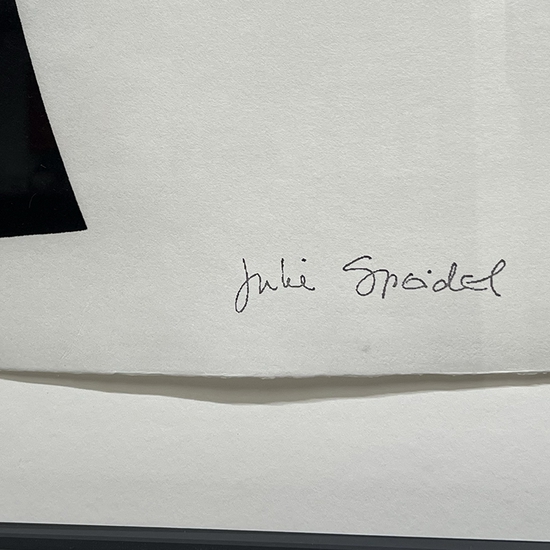 Julie Speidel